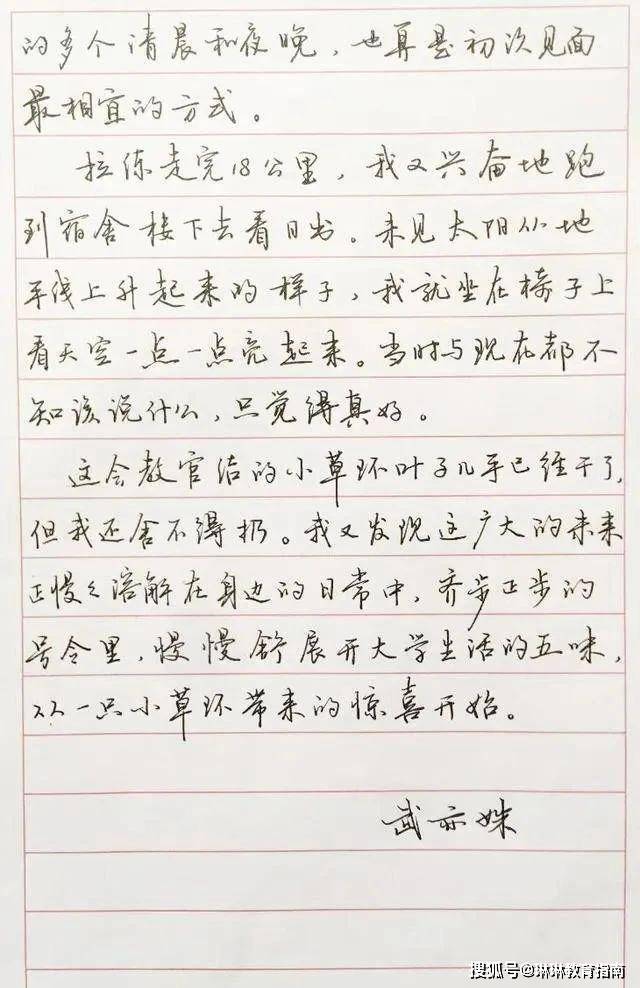 的多个清晨和夜晚，也算是初次见面
最相宜的方式。
拉练走完18公里，我又兴奋地跑
到宿舍楼下去看日出。未见太阳从地
平线上升起来的样子，我就坐在椅子上
看天空一点一点亮起来。当时与现在都不
知该说什么，只觉得真好。
这会教官给的小草环叶子几乎已经干了，
但我还舍不得扔。我又发现这广大的未来
正慢々溶解在身边的日常中，齐步正步的
号令里，慢慢舒展开大学生活的五味，
从一只小草环带来的惊喜开始。
武亦姝
搜狐号@琳琳教育指南